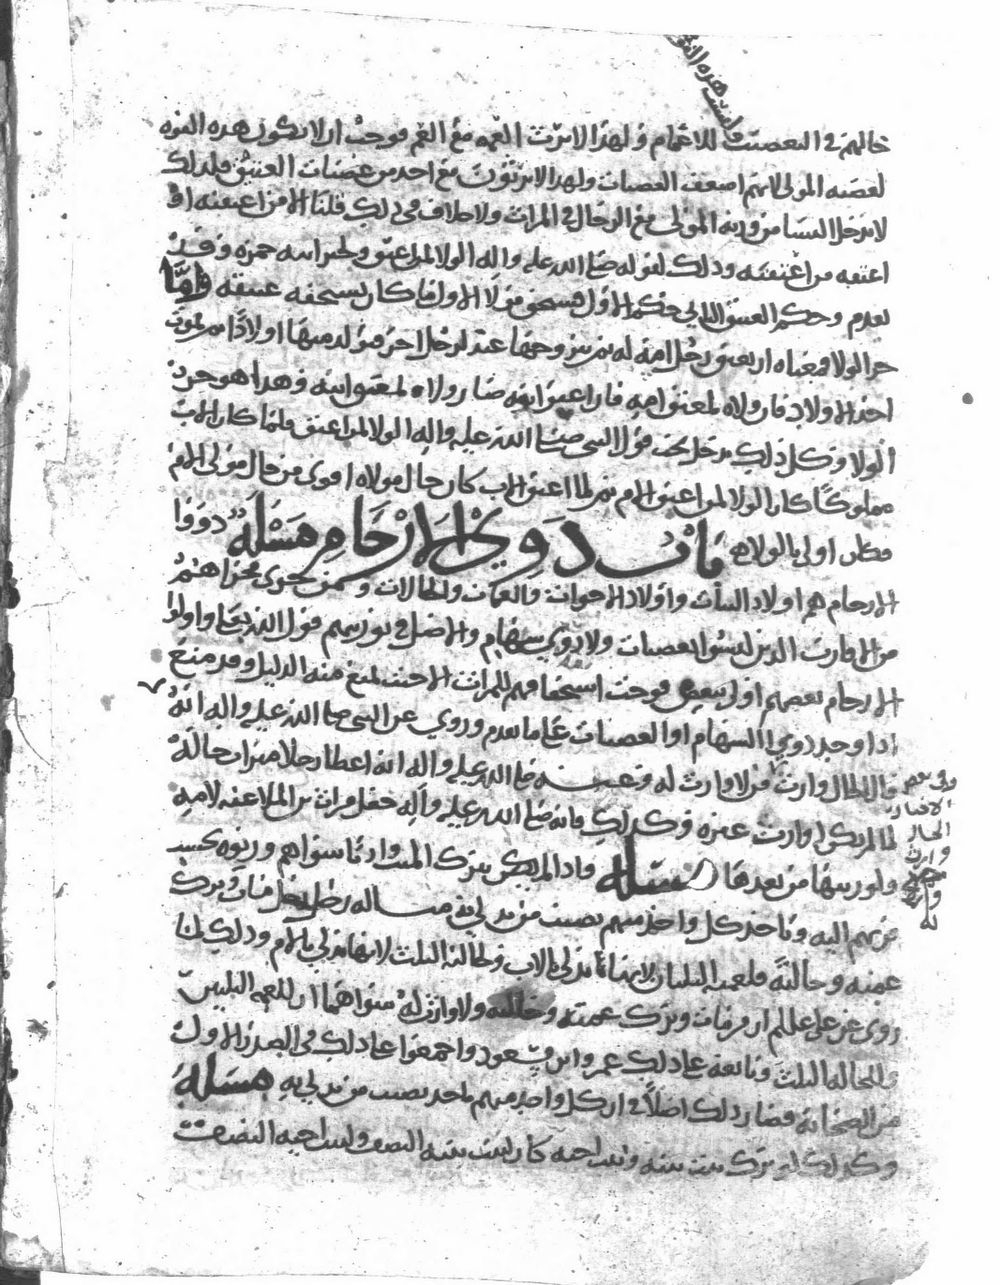 وليست هذه القوة
خالهم في التعصيب للاعمام ولهذا لا ترث العمه مع العم فوجب ان لا تكون هذه القوه
لعصبه المولى لانهم اضعف العصبات ولهذا لا يرثون مع احد من عصبات العتيق فلذلك
لا تدخل النسا من ورثه المولى مع الرجال في الميراث ولا خلاف في ذلك قلنا الا من اعتقنه او
اعتقه من اعتقنه وذلك لقوله صلى الله عليه واله الولا لمن اعتق ولخبر ابنه حمزه وقد
تقدم وحكم العتيق الثاني حكم الاول يستحق مولا الاول ما كان يستحقه عتيقه واما
جر الولا فمعناه ان يعتق رجل امه له ثم يزوجها عبد لرجل اخر فتولد منها اولادًا ثم يموت
احد الاولاد فان ولاه لمعتق امه فان اعتق ابوه صار ولاه لمعتق ابيه وهذا هو جر
الولا وكل ذلك يدخل تحت قول النبي صلى الله عليه واله الولا لمن اعتق فلما كان الاب
مملوكًا كان الولا لمن اعتق الام ثم لما اعتق الاب كان حال مولاه اقوى من حال مولى الام
فكان اولى بالولا باب ذوي الارحام مسله ذووا
الارحام هم اولاد البنات واولاد الاخوات والعمات والخالات ومن جرى مجراهم
من الاقارب الذين ليسوا بعصبات ولا ذوي سهام والاصل في توريثهم قول الله تعالى واولوا
الارحام بعضهم اولى ببعض فوجب استحقاقهم للميراث الا حيث لمنع منه الدليل وقد منع
اذا وجد ذوي السهام او العصبات على ما تقدم وروي عن النبي صلى الله عليه واله انه
قال الخال وارث من لا وارث له وعنه صلى الله عليه واله انه اعطا رجلا ميراث خاله
لما لم يكن له وارث غيره وكذلك فانه صلى الله عليه واله جعل ميراث بن الملاعنه لامه
ولورثتها من بعدها مسله واذا لم يكن يترك الميت وارثا سواهم ورثوه بحسب
قربهم اليه وياخذ كل واحد منهم نصيب من يدلي به مساله رجل مات وترك
عمته وخالته فللعمه الثلثان لانها تدلي بالاب وللخاله الثلث لانها تدلي بالام وذلك لما
روي عن علي علم في من مات وترك عمته وخالته ولا وارث له سواهما ان للعمه الثلثين
وللخاله الثلث وتابعه على ذلك عمر وابن مسعود واجمعوا على ذلك في الصدر الاول
من الصحابه فصار ذلك اصلًا في ان كل واحد منهم ياخذ نصيب من يدلي به مسله
وكذلك لو ترك بنت بنته وبنت اخيه كان لبنت بنته النصف ولبنت اخيه النصف
وفي بعض
الاخبار
الخال
وارث
من لا
وارث
له